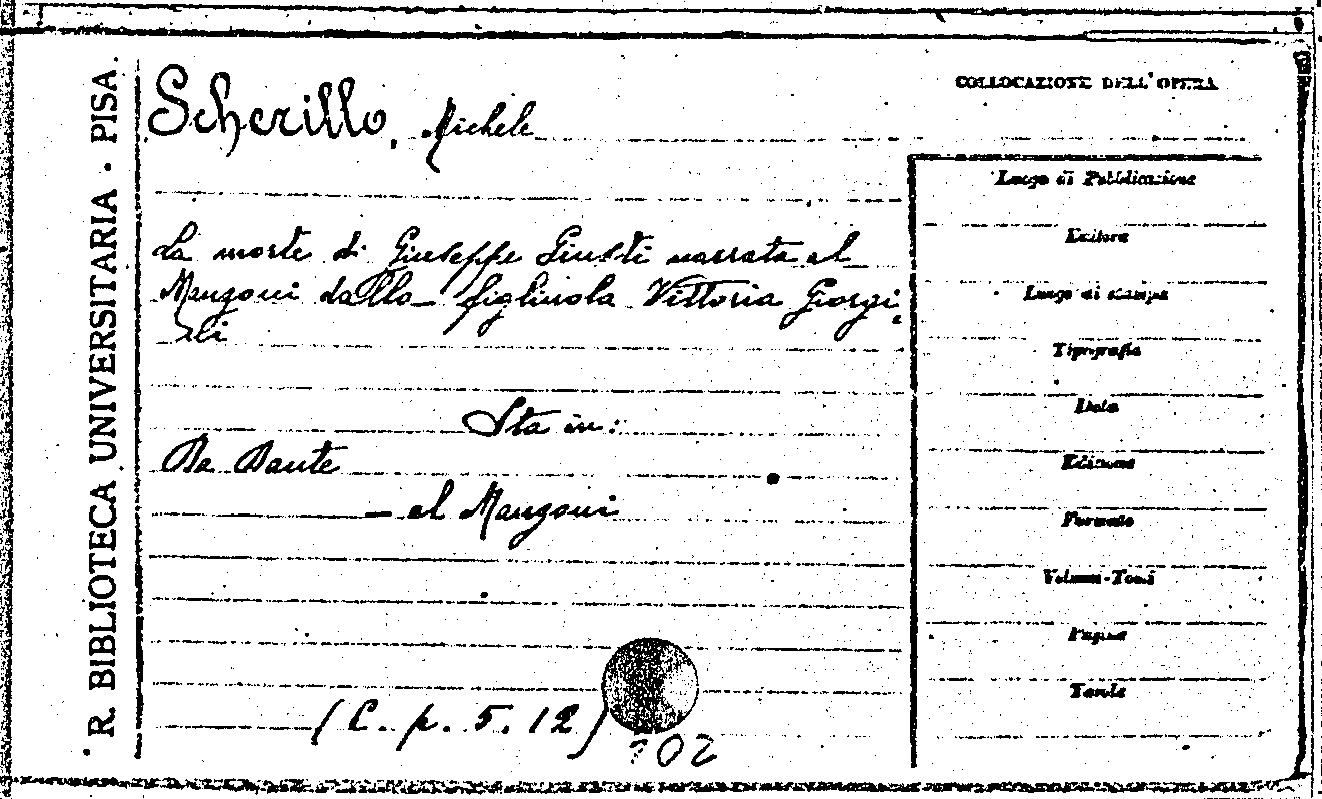 R. BIBLIOTECA UNIVERSITARIA · PISA.
Scherillo, Michele
La morte di Giuseppe Giusti narrata al
Manzoni dalla figliuola Vittoria Giorgi,
ni
Sta in:
Da Dante
— al Manzoni
(C. p. 5. 12)
COLLOCAZIONE DELL'OPERA
Luogo di Pubblicazione
Editore
Luogo di stampa
Tipografia
Data
Edizione
Formato
Volumi-Tomi
Pagine
Tavole